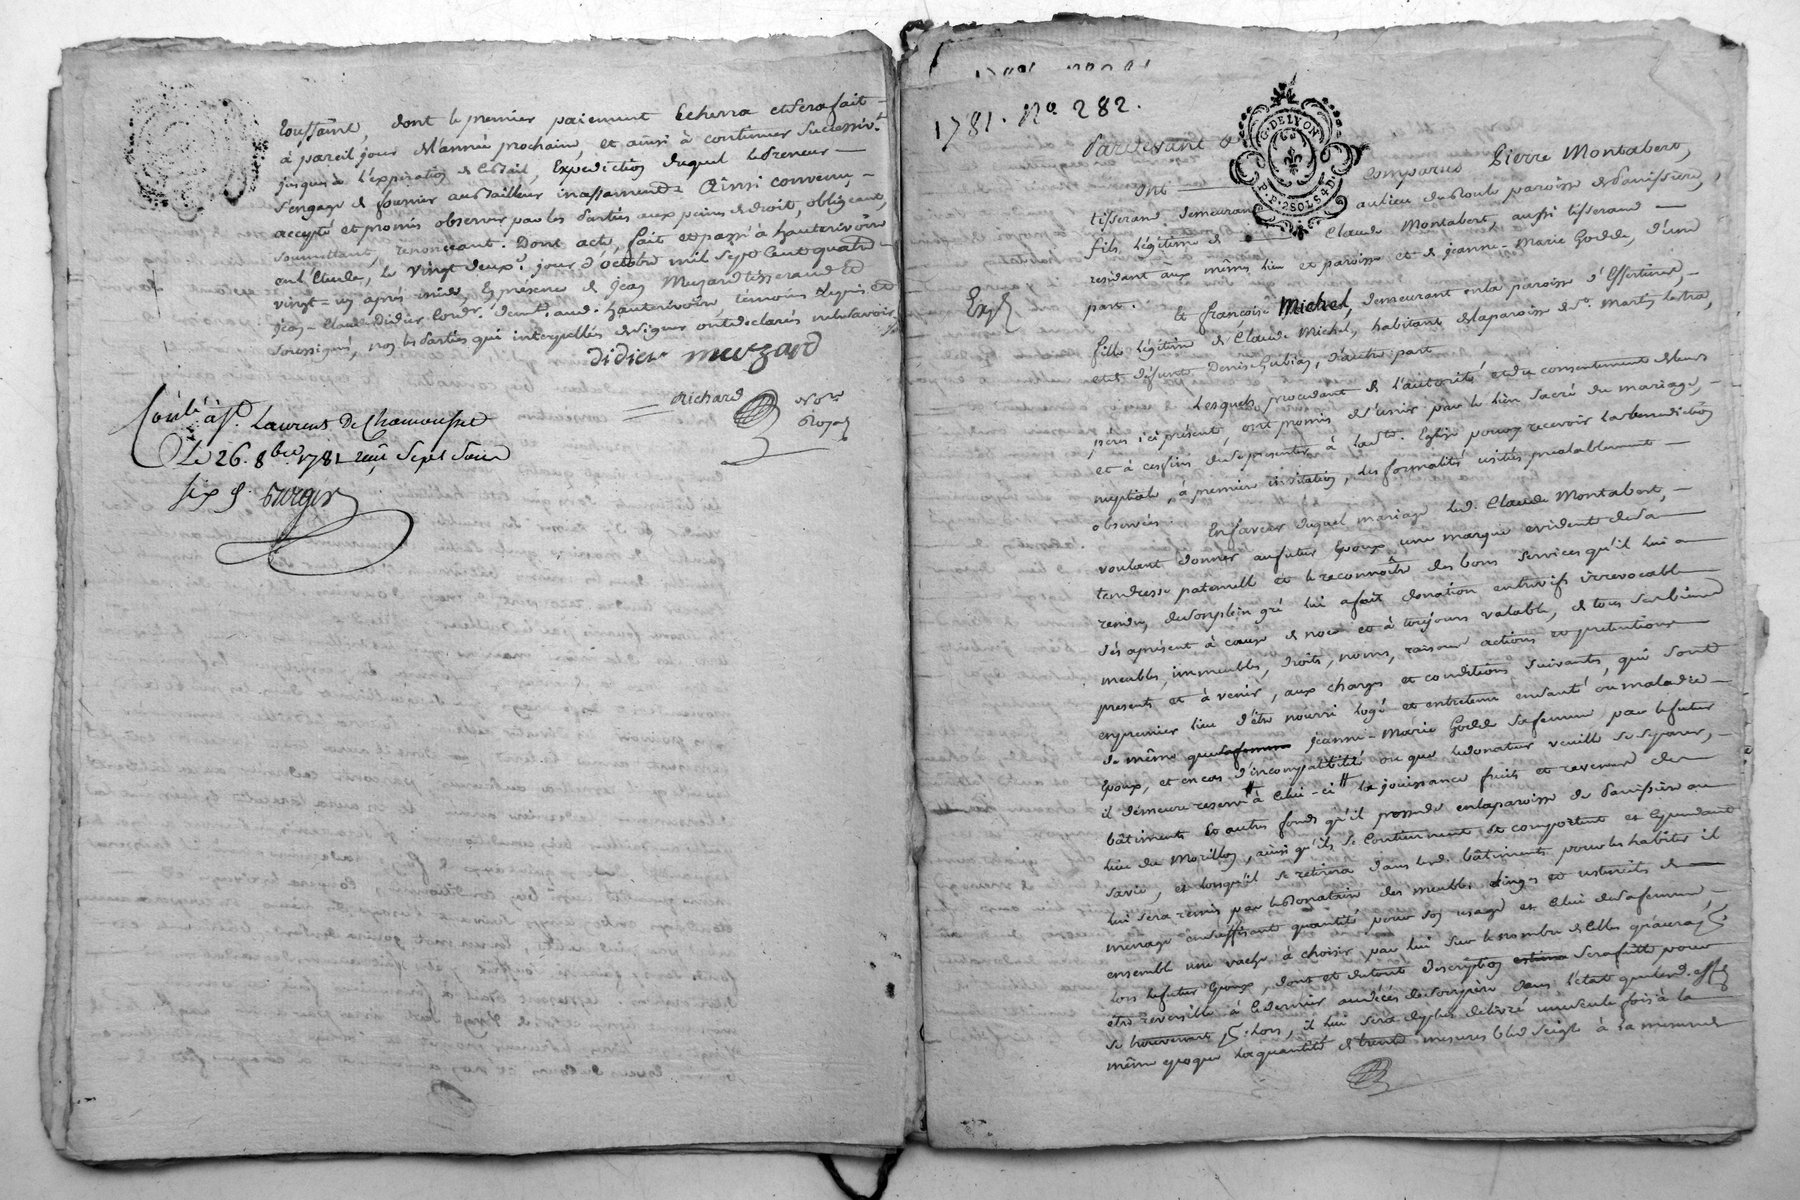 Toussaint, dont le premier paiement Echerra et sera fait
à pareil jour de l'année prochain, et ainsi à continuer successivt.
jusques à l'expiration de ce bail, Expedition duquel le Preneur
s'engage de fournir au Bailleur incessament. Ainsi convenu,
accepté et promis observer par les Parties aux peines de droit, obligeant,
soumettant, renonceant. Dont acte, fait et passé à hauterivoire
en l'Etude, le vingt deuxe. jour d'octobre mil sept cent quatre
vingt-un après midi, En présence de Jean Muzard tisserand Et
Jean-Claude Didier Cordr. demts. aud. hauterivoire temoins requis et
soussignés, non les Parties qui interpellés de signer ont declarés ne le savoir
didier muzard
Richard Nore
Royal
Contlé à St. Laurent De Chamousset
Le 26. 8bre. 1781 reçu Sept Sous
six d.
1781. No. 282.
G. DE LYON
P.P. 2 SOLS 4 D.
Pardevant
Ont comparus Pierre Montabert,
tisserand demeurant au lieu du Bouls paroisse de Panissiere,
fils légitime de Claude Montabert, aussi tisserand
residant aux mêmes lieu et paroisse et de jeanne-Marie Godde, d'une
part.
Expé
Et françoise Michel, demeurant en la paroisse d'Essertines,
fille légitime de Claude Michel, habitant de la paroisse de St. Martin Lestra,
et de défunte Denise Gubian, d'autre part
Lesquels procedant de l'autorité et du consentement de leurs
pères ici présents, ont promis de s'unir par le lien sacré du mariage,
et à ces fins de se presenter à lad. Eglise pour y recevoir la benediction
nuptiale, à premiere invitation, les formalités usités prealablement
observées.
En faveur duquel mariage led. Claude Montabert,
voulant donner au futur Epoux une marque evidente de sa
tendresse paternelle et le reconnoitre des bons services qu'il lui a
rendu, de son plein gré lui a fait donation entrevifs irrevocable
dès à présent à cause de noces et à toujours valable, de tous ses biens
meubles, immeubles, droits, noms, raisons actions et pretentions
presents et à venir, aux charges et conditions suivantes, qui sont
en premier lieu d'être nourri logé et entretenu en santé ou maladie
de même que sa femme Jeanne-Marie Godde sa femme par le futur
Epoux, et en cas d'incompatibilité ou que le donateur veuille se separer,
il demeure reservé à Celui-ci la jouissance fruits et revenus des
bâtiments Et autres fonds qu'il possede en la paroisse de Panissiere au
lieu du Morillon, ainsi qu'ils se Contiennent Et comportent et Ependant
sa vie, et lorsqu'il se retirera dans lesd. bâtiments pour les habiter il
lui sera remis par le Donataire des meubles linges et ustensils de
menage en suffisante quantité pour son usage et Celui de sa femme,
ensemble une vache à choisir par lui sur le nombre de Celles qu'aura
lors le futur Epoux, dont et du tout description sera faite pour
être reversible à Ce dernier au décès de son père dans l'état
se trouveront lors, il lui sera de plus délivré une seule fois à la
même epoque la quantité de trente mesures bled seigle à la mesure